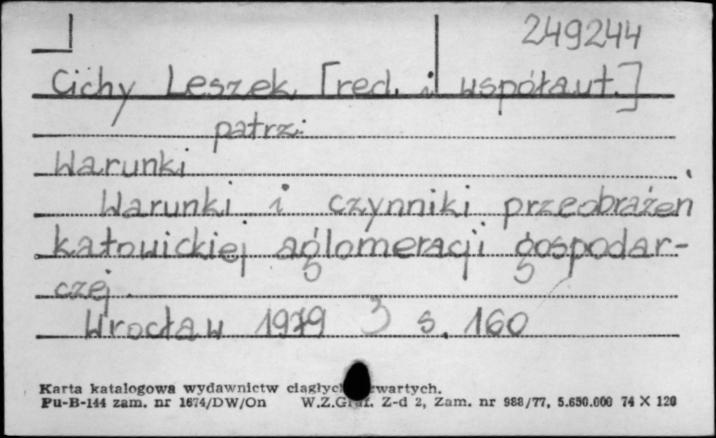 249244
Cichy Leszek [red. i współaut.]
patrz:
Warunki
Warunki i czynniki przeobrażeń
katowickiej aglomeracji gospodar-
czej.
Wrocław 1979 s. 160
Karta katalogowa wydawnictw ciągłych zwartych.
Pu-B-144 zam. nr 1674/DW/On W.Z.Graf. Z-d 2, Zam. nr 988/77, 5.650.000 74 X 120